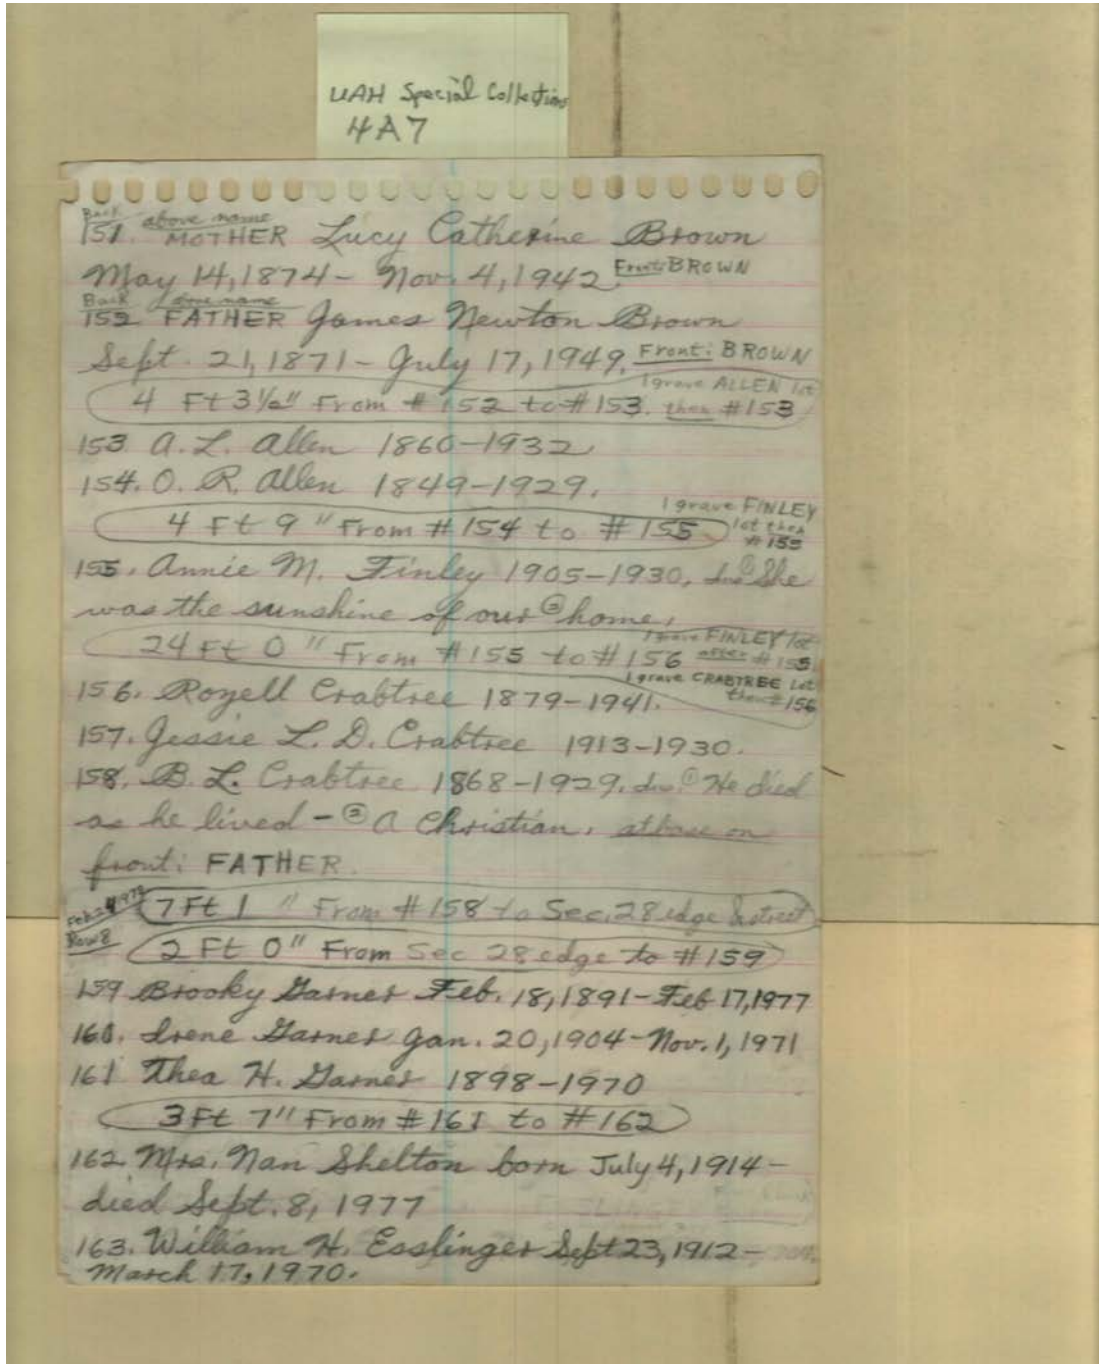 UAH Special Collections
4A7
Back above name
151. MOTHER Lucy Catherine Brown
May 14, 1874 - Nov. 4, 1942. Front: BROWN
Back above name
152 FATHER James Newton Brown
Sept. 21, 1871 - July 17, 1949. Front: BROWN
1 grave ALLEN lot
4 Ft 3½" From #152 to #153. then #153
153. A. L. Allen 1860-1932.
154. O. R. Allen 1849-1929.
1 grave FINLEY
4 Ft 9" From #154 to #155 lot then
#155
155. Annie M. Finley 1905-1930. Ins. ① She
was the sunshine of our ② home.
1 grave FINLEY lot
24 Ft 0" From #155 to #156 after #155
1 grave CRABTREE Lot
156. Rozell Crabtree 1879-1941. then #156
157. Jessie L. D. Crabtree 1913-1930.
158. B. L. Crabtree 1868-1929. Ins. ① He died
as he lived - ② A Christian. at base on
front: FATHER.
7 Ft 1" From #158 to Sec. 28 edge & street
Row 8 2 Ft 0" From Sec 28 edge to #159
159 Brooky Garner Feb. 18, 1891 - Feb 17, 1977
160. Irene Garner Jan. 20, 1904 - Nov. 1, 1971
161 Thea H. Garner 1898-1970
3 Ft 7" From #161 to #162
162 Mrs. Nan Shelton born July 4, 1914 -
died Sept. 8, 1977
163. William H. Esslinger Sept 23, 1912 -
March 17, 1970.